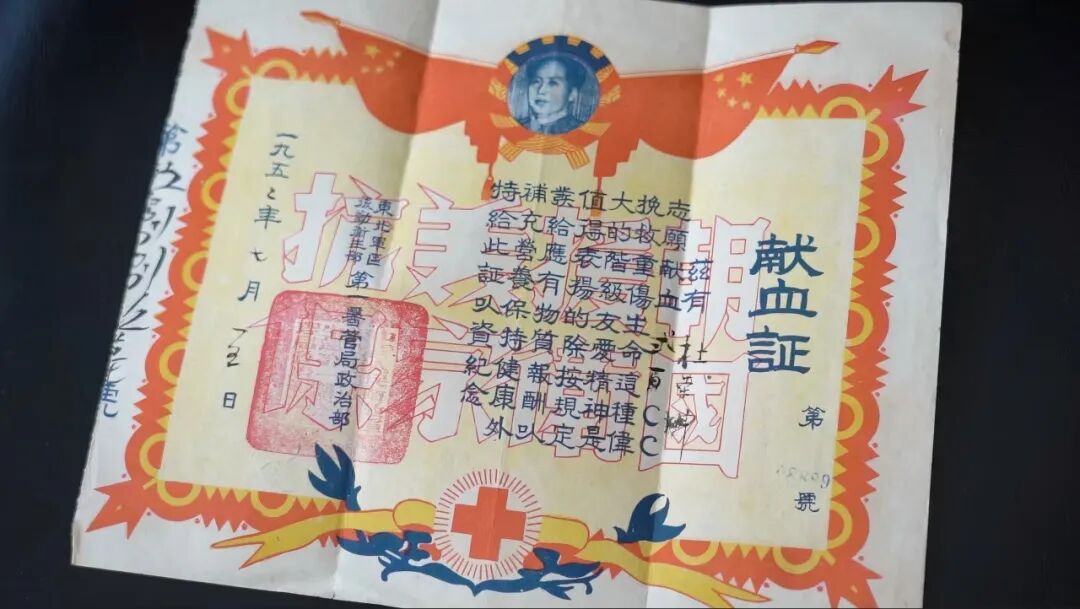 献血証
第 號
茲有杜
志願献血弍百CC
挽救重傷生命這種偉
大的階級友愛精神是
值得表揚的除按規定
發給應有物質報酬以
補充營養保持健康外
特給此証以資紀念
東北軍區
後勤衛生部
第一署管局政治部
一九五二年七月一五日
抗美援朝
保家衛國